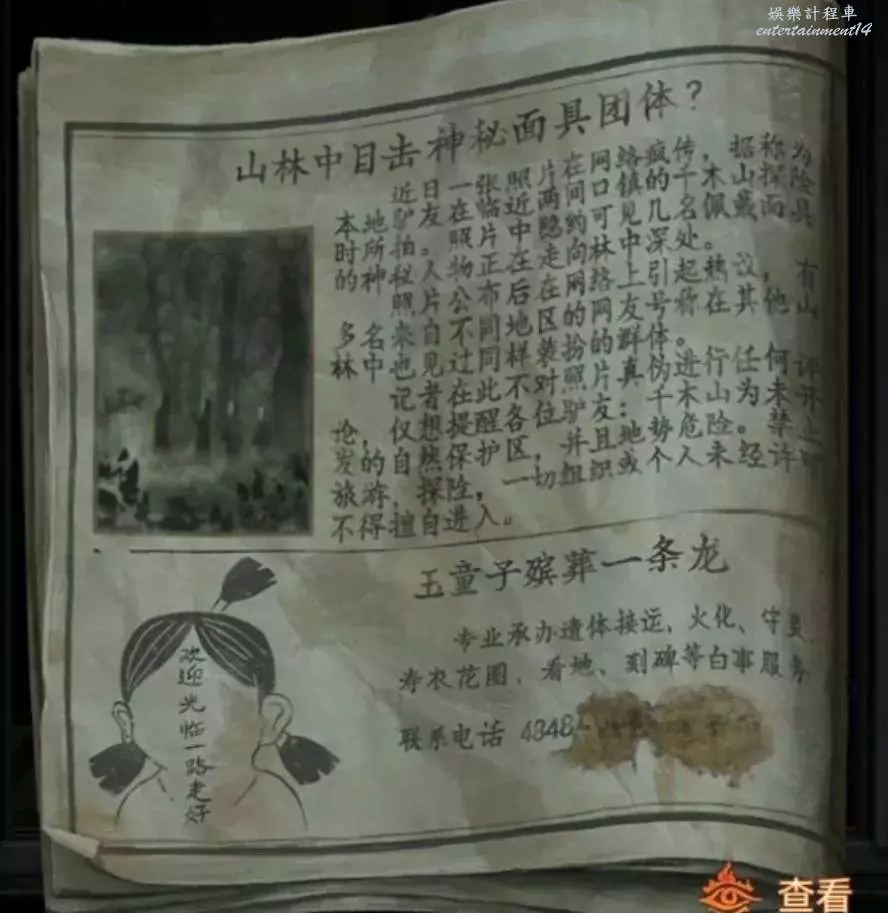 娛樂計程車
entertainment14
山林中目击神秘面具团体？
近日一张照片在网络疯传，据称为
本地驴友在临近两间口镇的千木山探险
时所拍。照片中隐约可见几名佩戴面具
的神秘人物正在走向林中深处。
照片公布后在网络上引起热议，有
多名来自不同地区的网友号称在其他山
林中也见过同样装扮的群体。
记者在此不对照片真伪进行任何评
论，仅想提醒各位驴友：千木山为未开
发的自然保护区，并且地势危险。禁止
旅游、探险，一切组织或个人未经许可
不得擅自进入。
欢迎光临一路走好
玉童子殡葬一条龙
专业承办遗体接运、火化、守灵、
寿衣花圈、看地、刻碑等白事服务
联系电话
查看